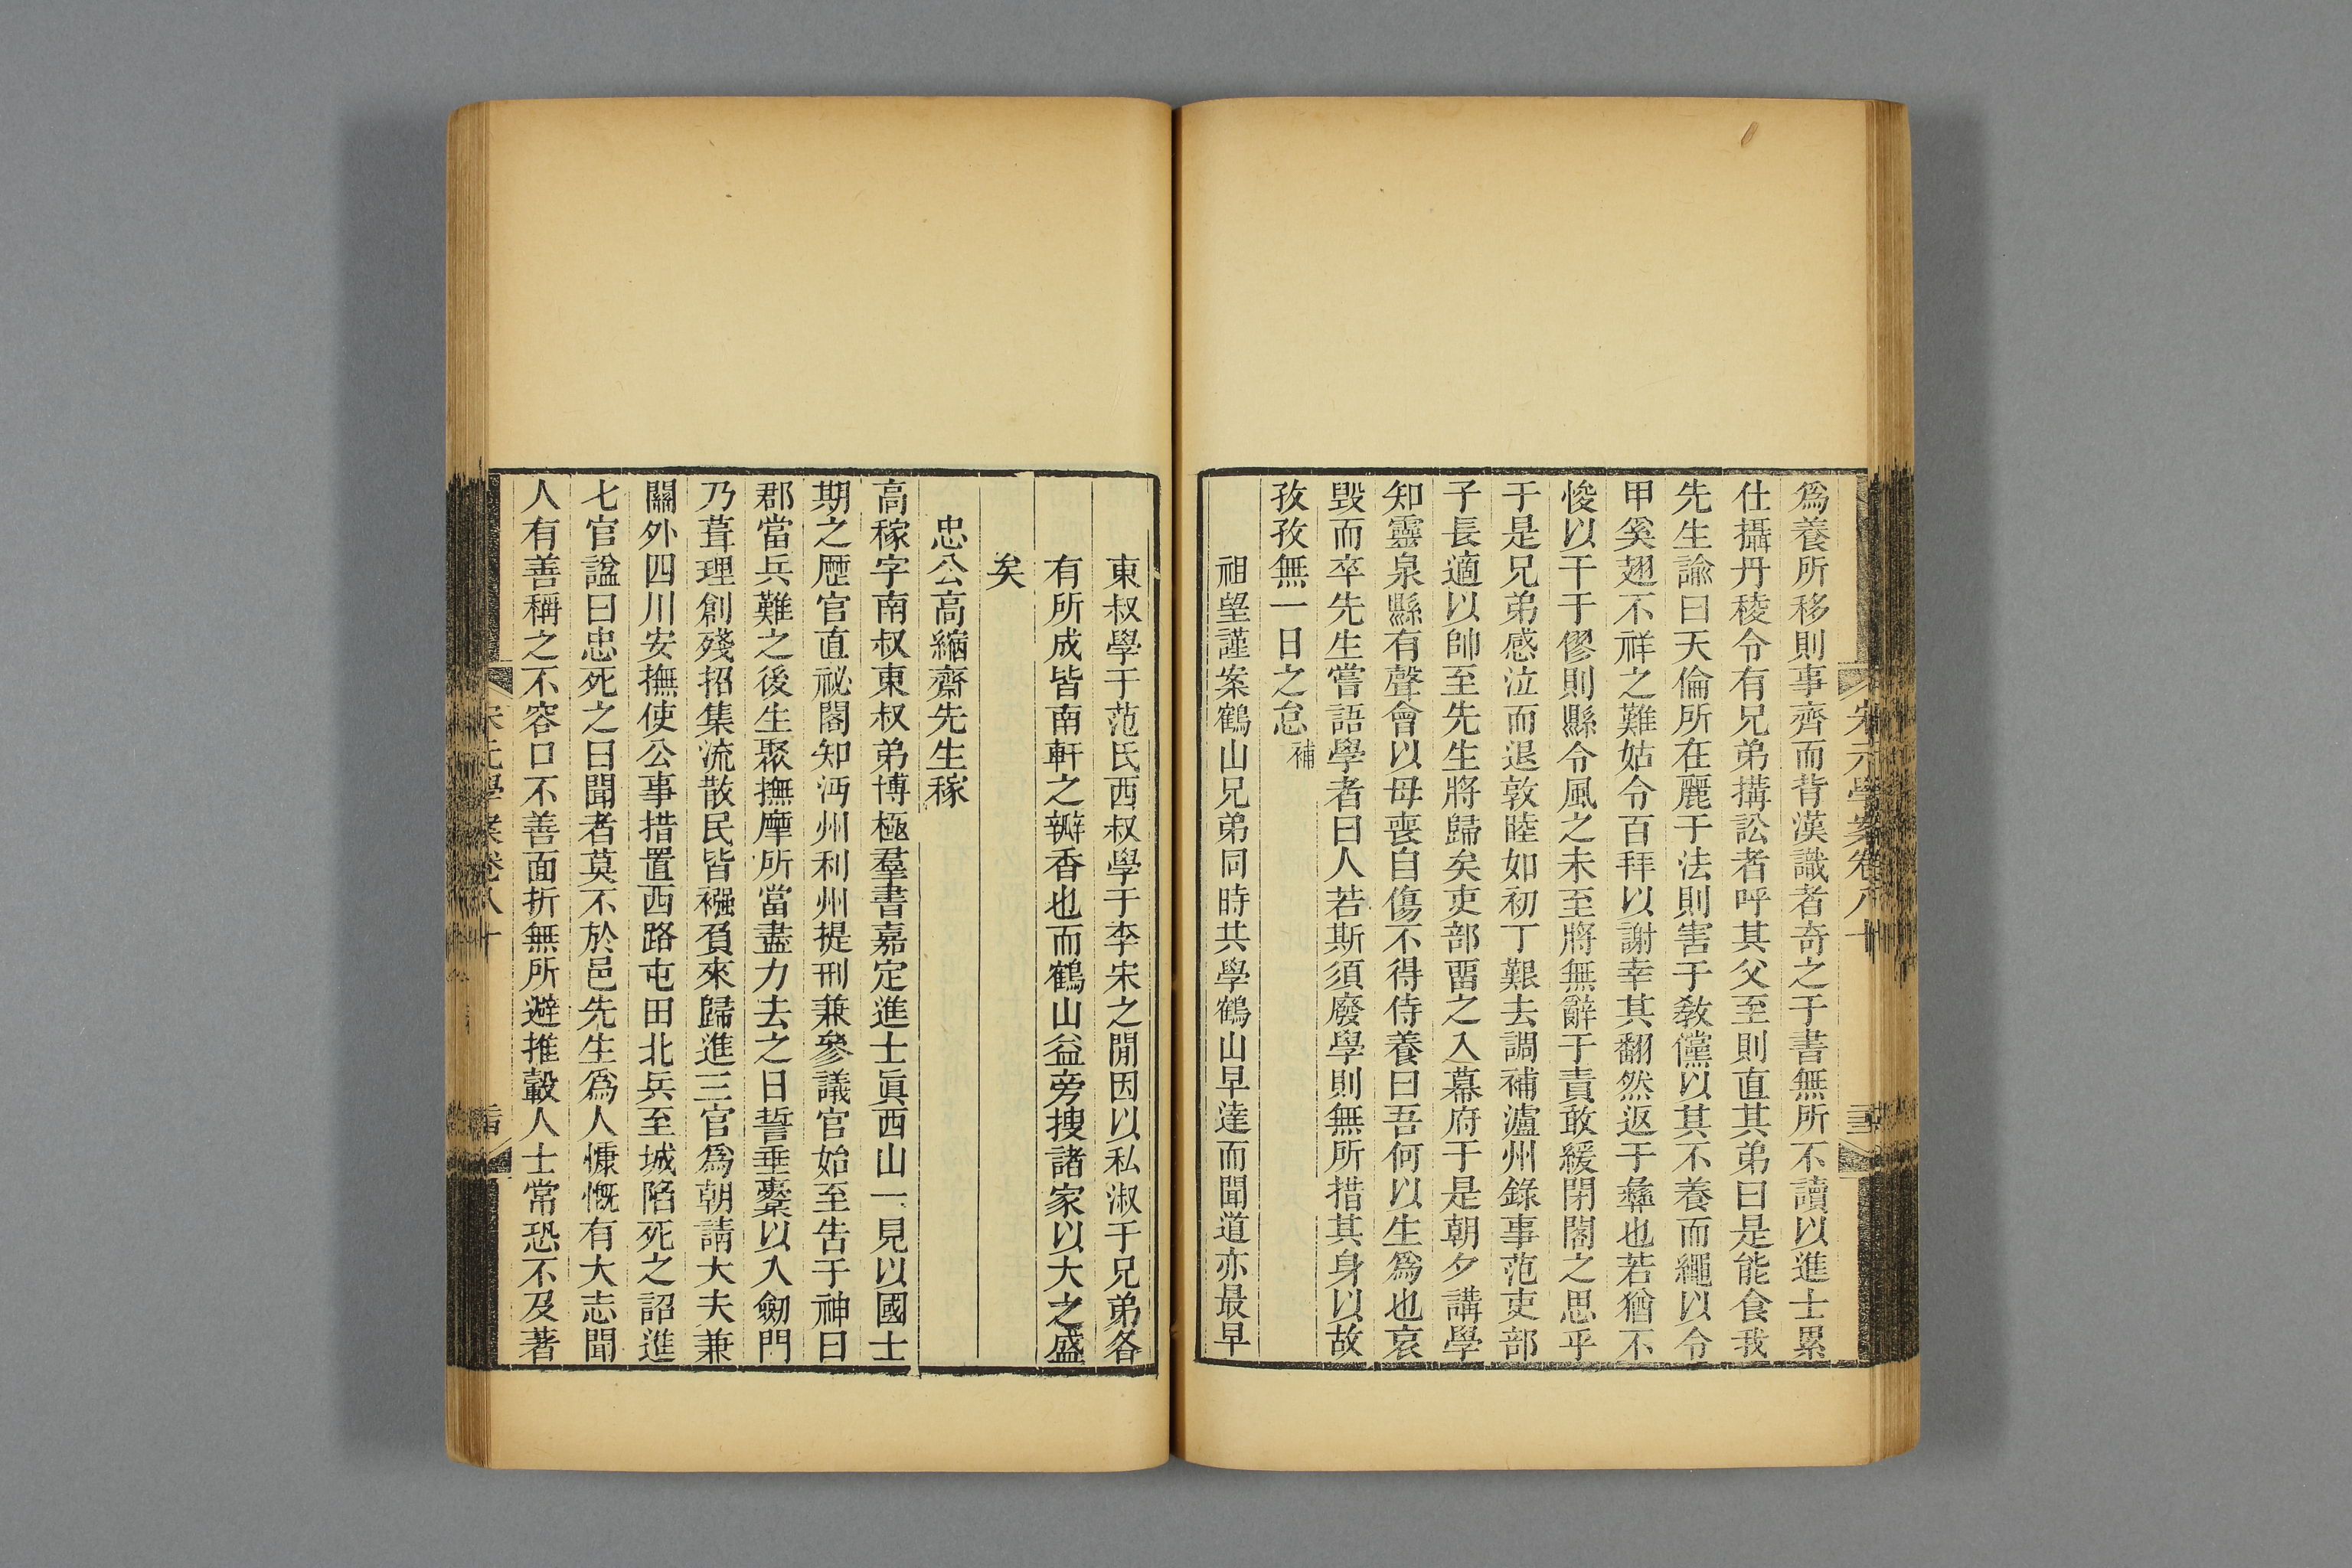 宋元學案卷八十
爲養所移則事齊而背漢識者奇之于書無所不讀以進士累
仕攝丹稜令有兄弟搆訟者呼其父至則直其弟曰是能食我
先生諭曰天倫所在麗于法則害于敎儻以其不養而繩以令
甲奚翅不祥之難姑令百拜以謝幸其翻然返于彝也若猶不
悛以干于僇則縣令風之未至將無辭于責敢緩閉閤之思乎
于是兄弟感泣而退敦睦如初丁艱去調補瀘州錄事范吏部
子長適以帥至先生將歸矣吏部畱之入幕府于是朝夕講學
知靈泉縣有聲會以母喪自傷不得侍養曰吾何以生爲也哀
毀而卒先生嘗語學者曰人若斯須廢學則無所措其身以故
孜孜無一日之怠補
祖望謹案鶴山兄弟同時共學鶴山早達而聞道亦最早
東叔學于范氏西叔學于李宋之閒因以私淑于兄弟各
有所成皆南軒之瓣香也而鶴山益旁搜諸家以大之盛
矣
忠公高縮齋先生稼
高稼字南叔東叔弟博極羣書嘉定進士眞西山一見以國士
期之歷官直祕閣知沔州利州提刑兼參議官始至告于神曰
郡當兵難之後生聚撫摩所當盡力去之日誓垂橐以入劒門
乃葺理創殘招集流散民皆襁負來歸進三官爲朝請大夫兼
關外四川安撫使公事措置西路屯田北兵至城陷死之詔進
七官諡曰忠死之日聞者莫不於邑先生爲人慷慨有大志聞
人有善稱之不容口不善面折無所避推轂人士常恐不及著
宋元學案卷八十